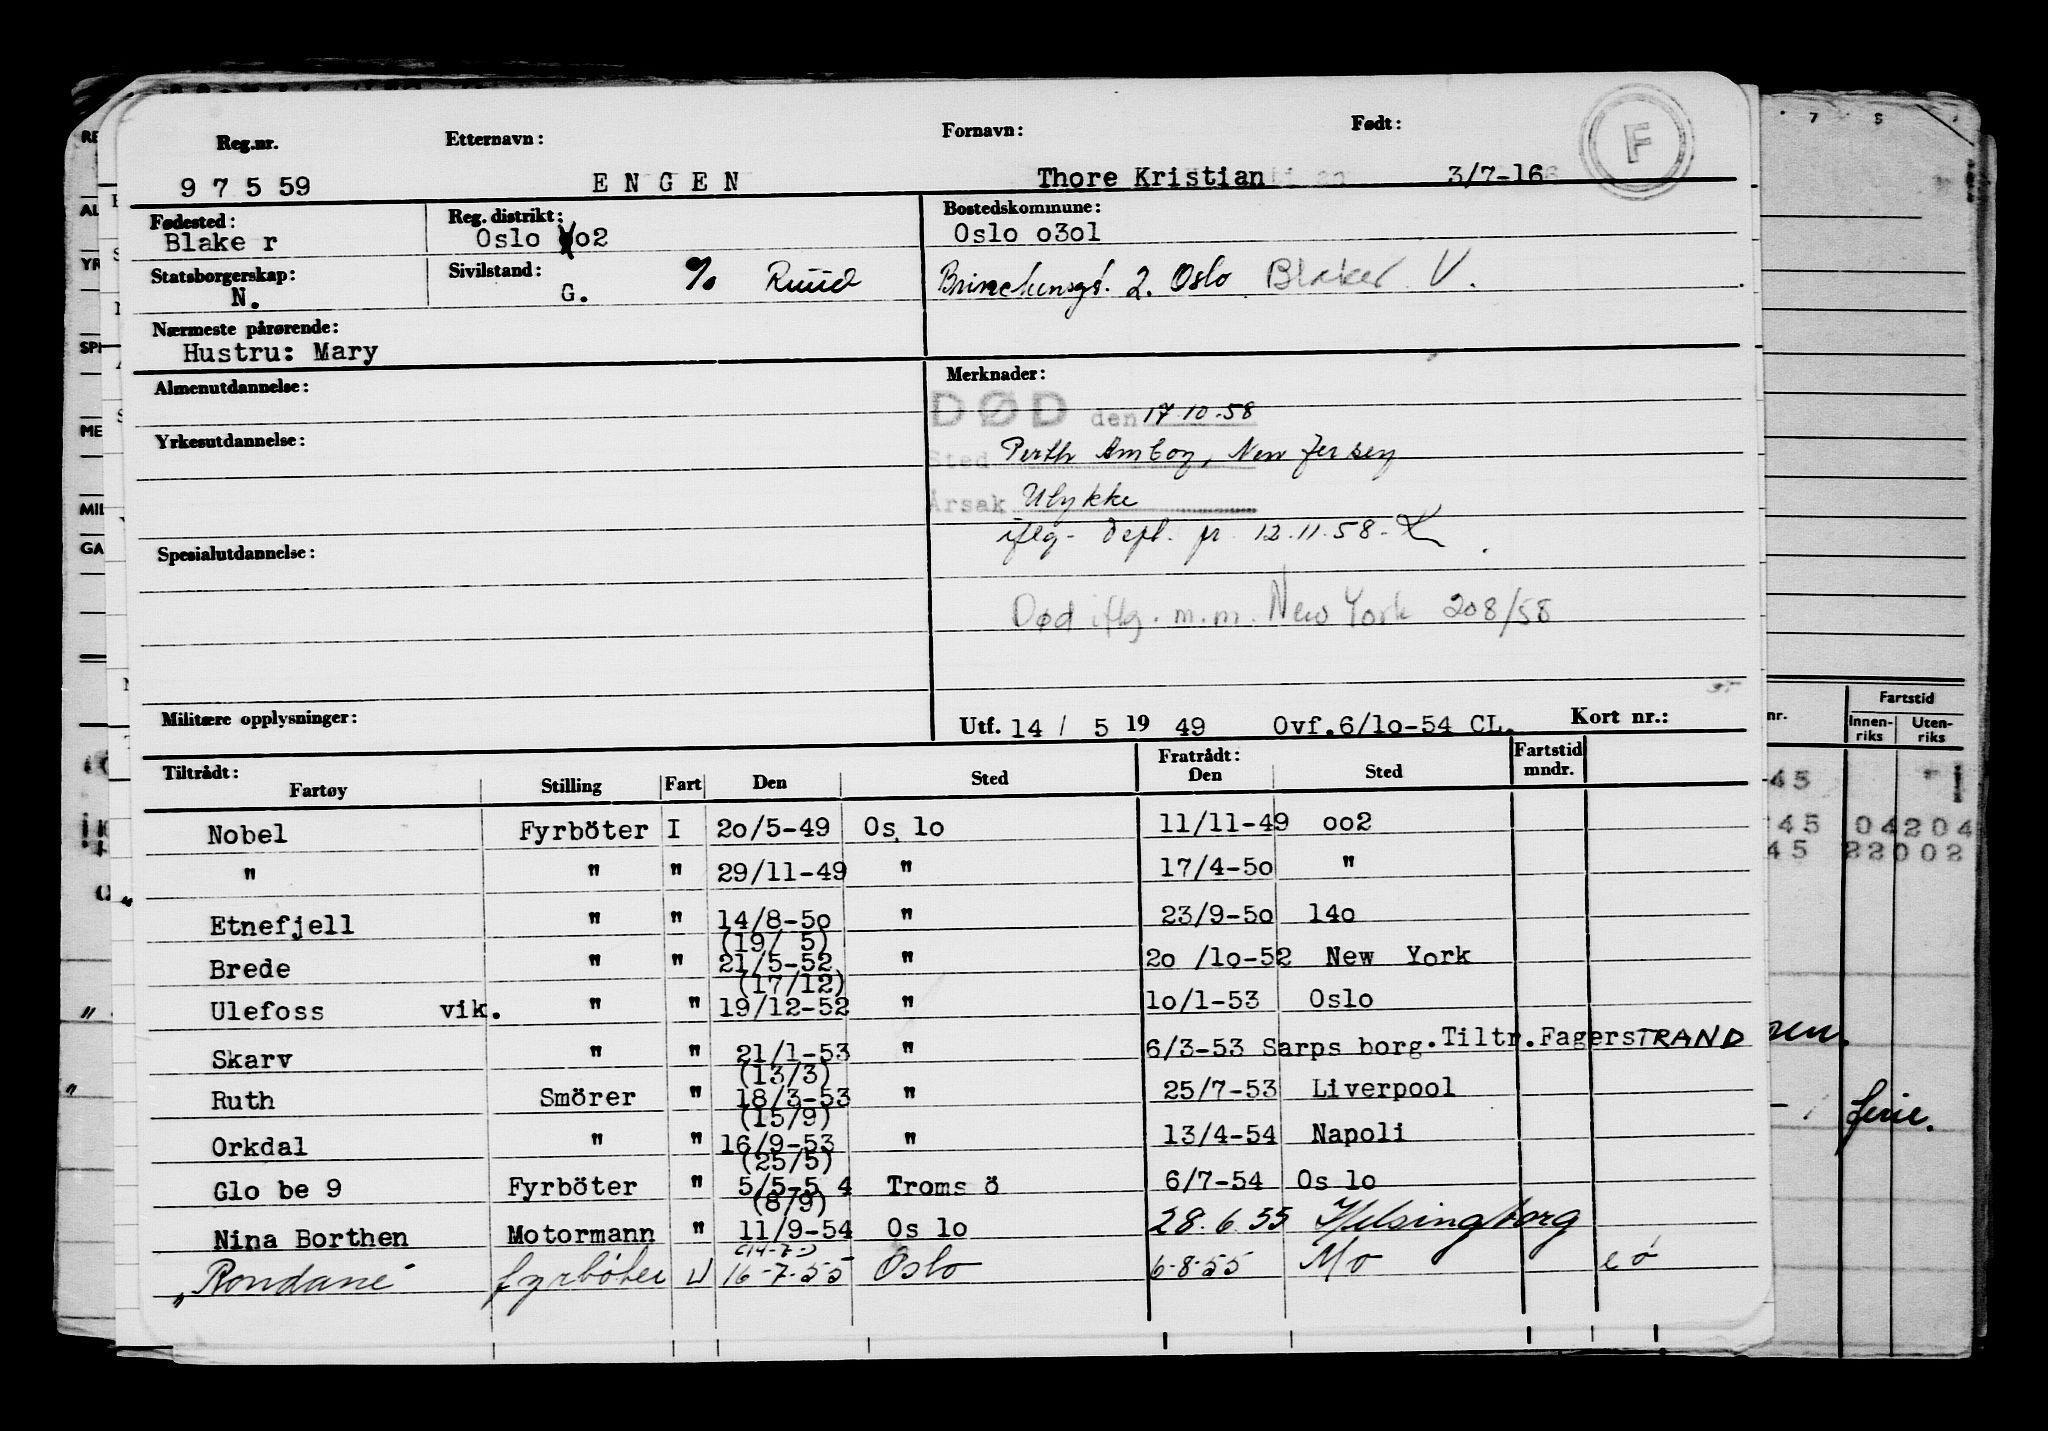 Reg.nr. Etternavn: Fornavn: Født: F
9 7 5 59 E N G E N Thore Kristian 3/7-16
Fødested: Reg. distrikt: Bostedskommune:
Blake r Oslo oo2 Oslo o3o1
Statsborgerskap: Sivilstand:
N. G. % Ruud Brinchensgt. 2. Oslo Blaker V.
Nærmeste pårørende:
Hustru: Mary
Almenutdannelse: Merknader:
DØD den 17.10.58
Yrkesutdannelse: Sted Perth Amboy, New Jersey
Årsak Ulykke
iflg. depl. pr 12.11.58.
Spesialutdannelse:
Død iflg. m.m. New York 208/58
Militære opplysninger: Utf. 14 / 5 19 49 Ovf.6/1o-54 CL. Kort nr.:
Tiltrådt: Fratrådt: Fartstid
Fartøy Stilling Fart Den Sted Den Sted mndr.
Nobel Fyrböter I 2o/5-49 Os lo 11/11-49 oo2
" " " 29/11-49 " 17/4-5o "
Etnefjell " " 14/8-5o " 23/9-5o 14o
(19/ 5)
Brede " " 21/5-52 " 2o /1o-52 New York
(17/12)
Ulefoss vik. " " 19/12-52 " 1o/1-53 Oslo
Skarv " " 21/1-53 " 6/3-53 Sarps borg.Tiltr.FagerSTRAND
(13/3)
Ruth Smörer " 18/3-53 " 25/7-53 Liverpool
(15/9)
Orkdal " " 16/9-53 " 13/4-54 Napoli
(25/5)
Glo be 9 Fyrböter " 5/5-5 4 Troms ö 6/7-54 Os lo
(8/9)
Nina Borthen Motormann " 11/9-54 Os lo 28.6.55 Helsingborg
(14-7-)
"Rondane" fyrbøter U 16-7-55 Oslo 6-8-55 Mo e ó
RE
AL
YR
SPE
ME
MIL
GA
7 8
nr. Fartstid
Innen- Uten-
riks riks
45
45 04204
45 22002
ferie.